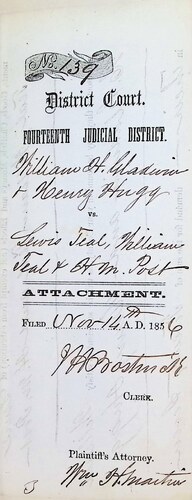 No. 139
District Court.
FOURTEENTH JUDICIAL DISTRICT.
William H. Chadwin
& Henry Hugg
vs.
Lewis Teal, William
Teal & H. M. Post
ATTACHMENT.
FILED Nov 14th A. D. 1856
CLERK.
Plaintiff's Attorney.
Wm H. Martin